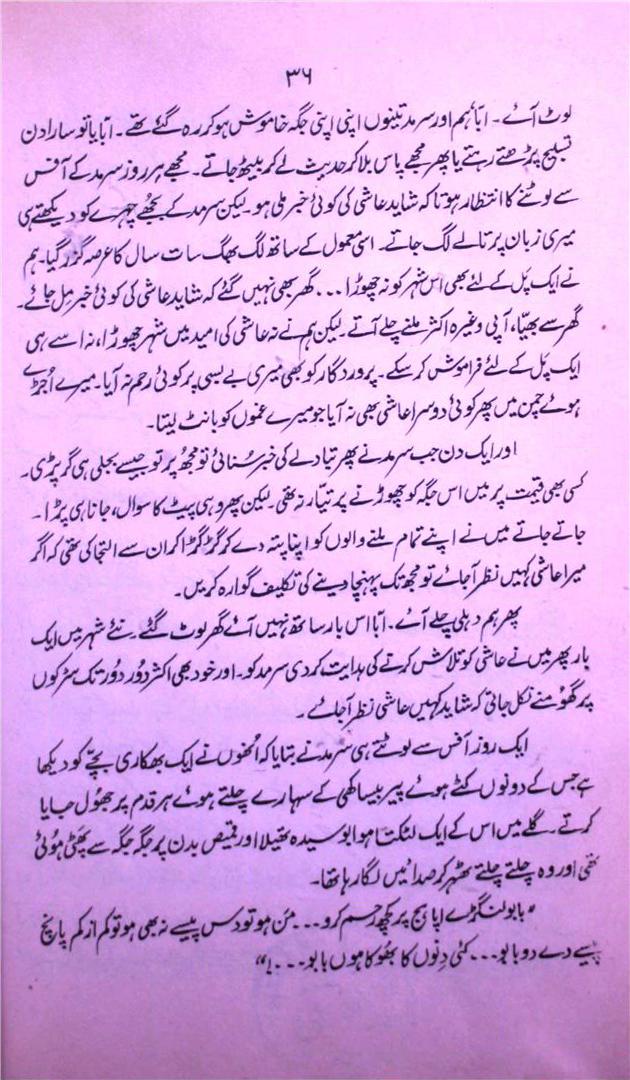 ۳۶
لوٹ آئے۔ ابّا، ہم اور سرمد تینوں اپنی اپنی جگہ خاموش ہو کر رہ گئے تھے۔ ابّا یا تو سارا دن
تسبیح پڑھتے رہتے یا پھر مجھے پاس بلا کر حدیث لے کر بیٹھ جاتے۔ مجھے ہر روز سرمد کے آفس
سے لوٹنے کا انتظار ہوتا کہ شاید عاشی کی کوئی خبر ملی ہو۔ لیکن سرمد کے بجھے چہرے کو دیکھتے ہی
میری زبان پر تالے لگ جاتے۔ اسی معمول کے ساتھ لگ بھگ سات سال کا عرصہ گزر گیا۔ ہم
نے ایک پل کے لئے بھی اس شہر کو نہ چھوڑا ... گھر بھی نہیں گئے کہ شاید عاشی کی کوئی خبر مِل جائے۔
گھر سے بھیّا، آپی وغیرہ اکثر ملنے چلے آتے۔ لیکن ہم نے نہ عاشی کی امید میں شہر چھوڑا، نہ اسے ہی
ایک پَل کے لئے فراموش کر سکے۔ پروردگار کو بھی میری بے بسی پر کوئی رحم نہ آیا۔ میرے اُجڑے
ہوئے چمن میں پھر کوئی دوسرا عاشی بھی نہ آیا جو میرے غموں کو بانٹ لیتا۔
اور ایک دن جب سرمد نے پھر تبادلے کی خبر سُنائی تو مجھ پر تو جیسے بجلی ہی گر پڑی۔
کسی بھی قیمت پر میں اس جگہ کو چھوڑنے پر تیّار نہ تھی۔ لیکن پھر وہی پیٹ کا سوال، جانا ہی پڑا۔
جاتے جاتے میں نے اپنے تمام ملنے والوں کو اپنا پتہ دے کر گڑگڑا کر ان سے التجا کی تھی کہ اگر
میرا عاشی کہیں نظر آ جائے تو مجھ تک پہنچا دینے کی تکلیف گوارہ کریں۔
پھر ہم دہلی چلے آئے۔ ابّا اس بار ساتھ نہیں آئے گھر لوٹ گئے۔ نئے شہر میں ایک
بار پھر میں نے عاشی کو تلاش کرنے کی ہدایت کر دی سرمد کو۔ اور خود بھی اکثر دُور دُور تک سڑکوں
پر گھومنے نکل جاتی کہ شاید کہیں عاشی نظر آ جائے۔
ایک روز آفس سے لوٹتے ہی سرمد نے بتایا کہ اُنھوں نے ایک بھکاری بچّے کو دیکھا
ہے جس کے دونوں کٹے ہوئے پیر بیساکھی کے سہارے چلتے ہوئے ہر قدم پر جھُول جایا
کرتے۔ گلے میں اس کے ایک لٹکتا ہوا بوسیدہ تھیلا اور قمیص بدن پر جگہ جگہ سے پھٹی ہوئی
تھی اور وہ چلتے چلتے ٹھہر کر صدائیں لگا رہا تھا۔
"بابو لنگڑے اپاہج پر کچھ رحم کرو... من ہو تو دس پیسے نہ بھی ہو تو کم از کم پانچ
پیسے دے دو بابو... کئی دِنوں کا بھُوکا ہوں بابو...!"